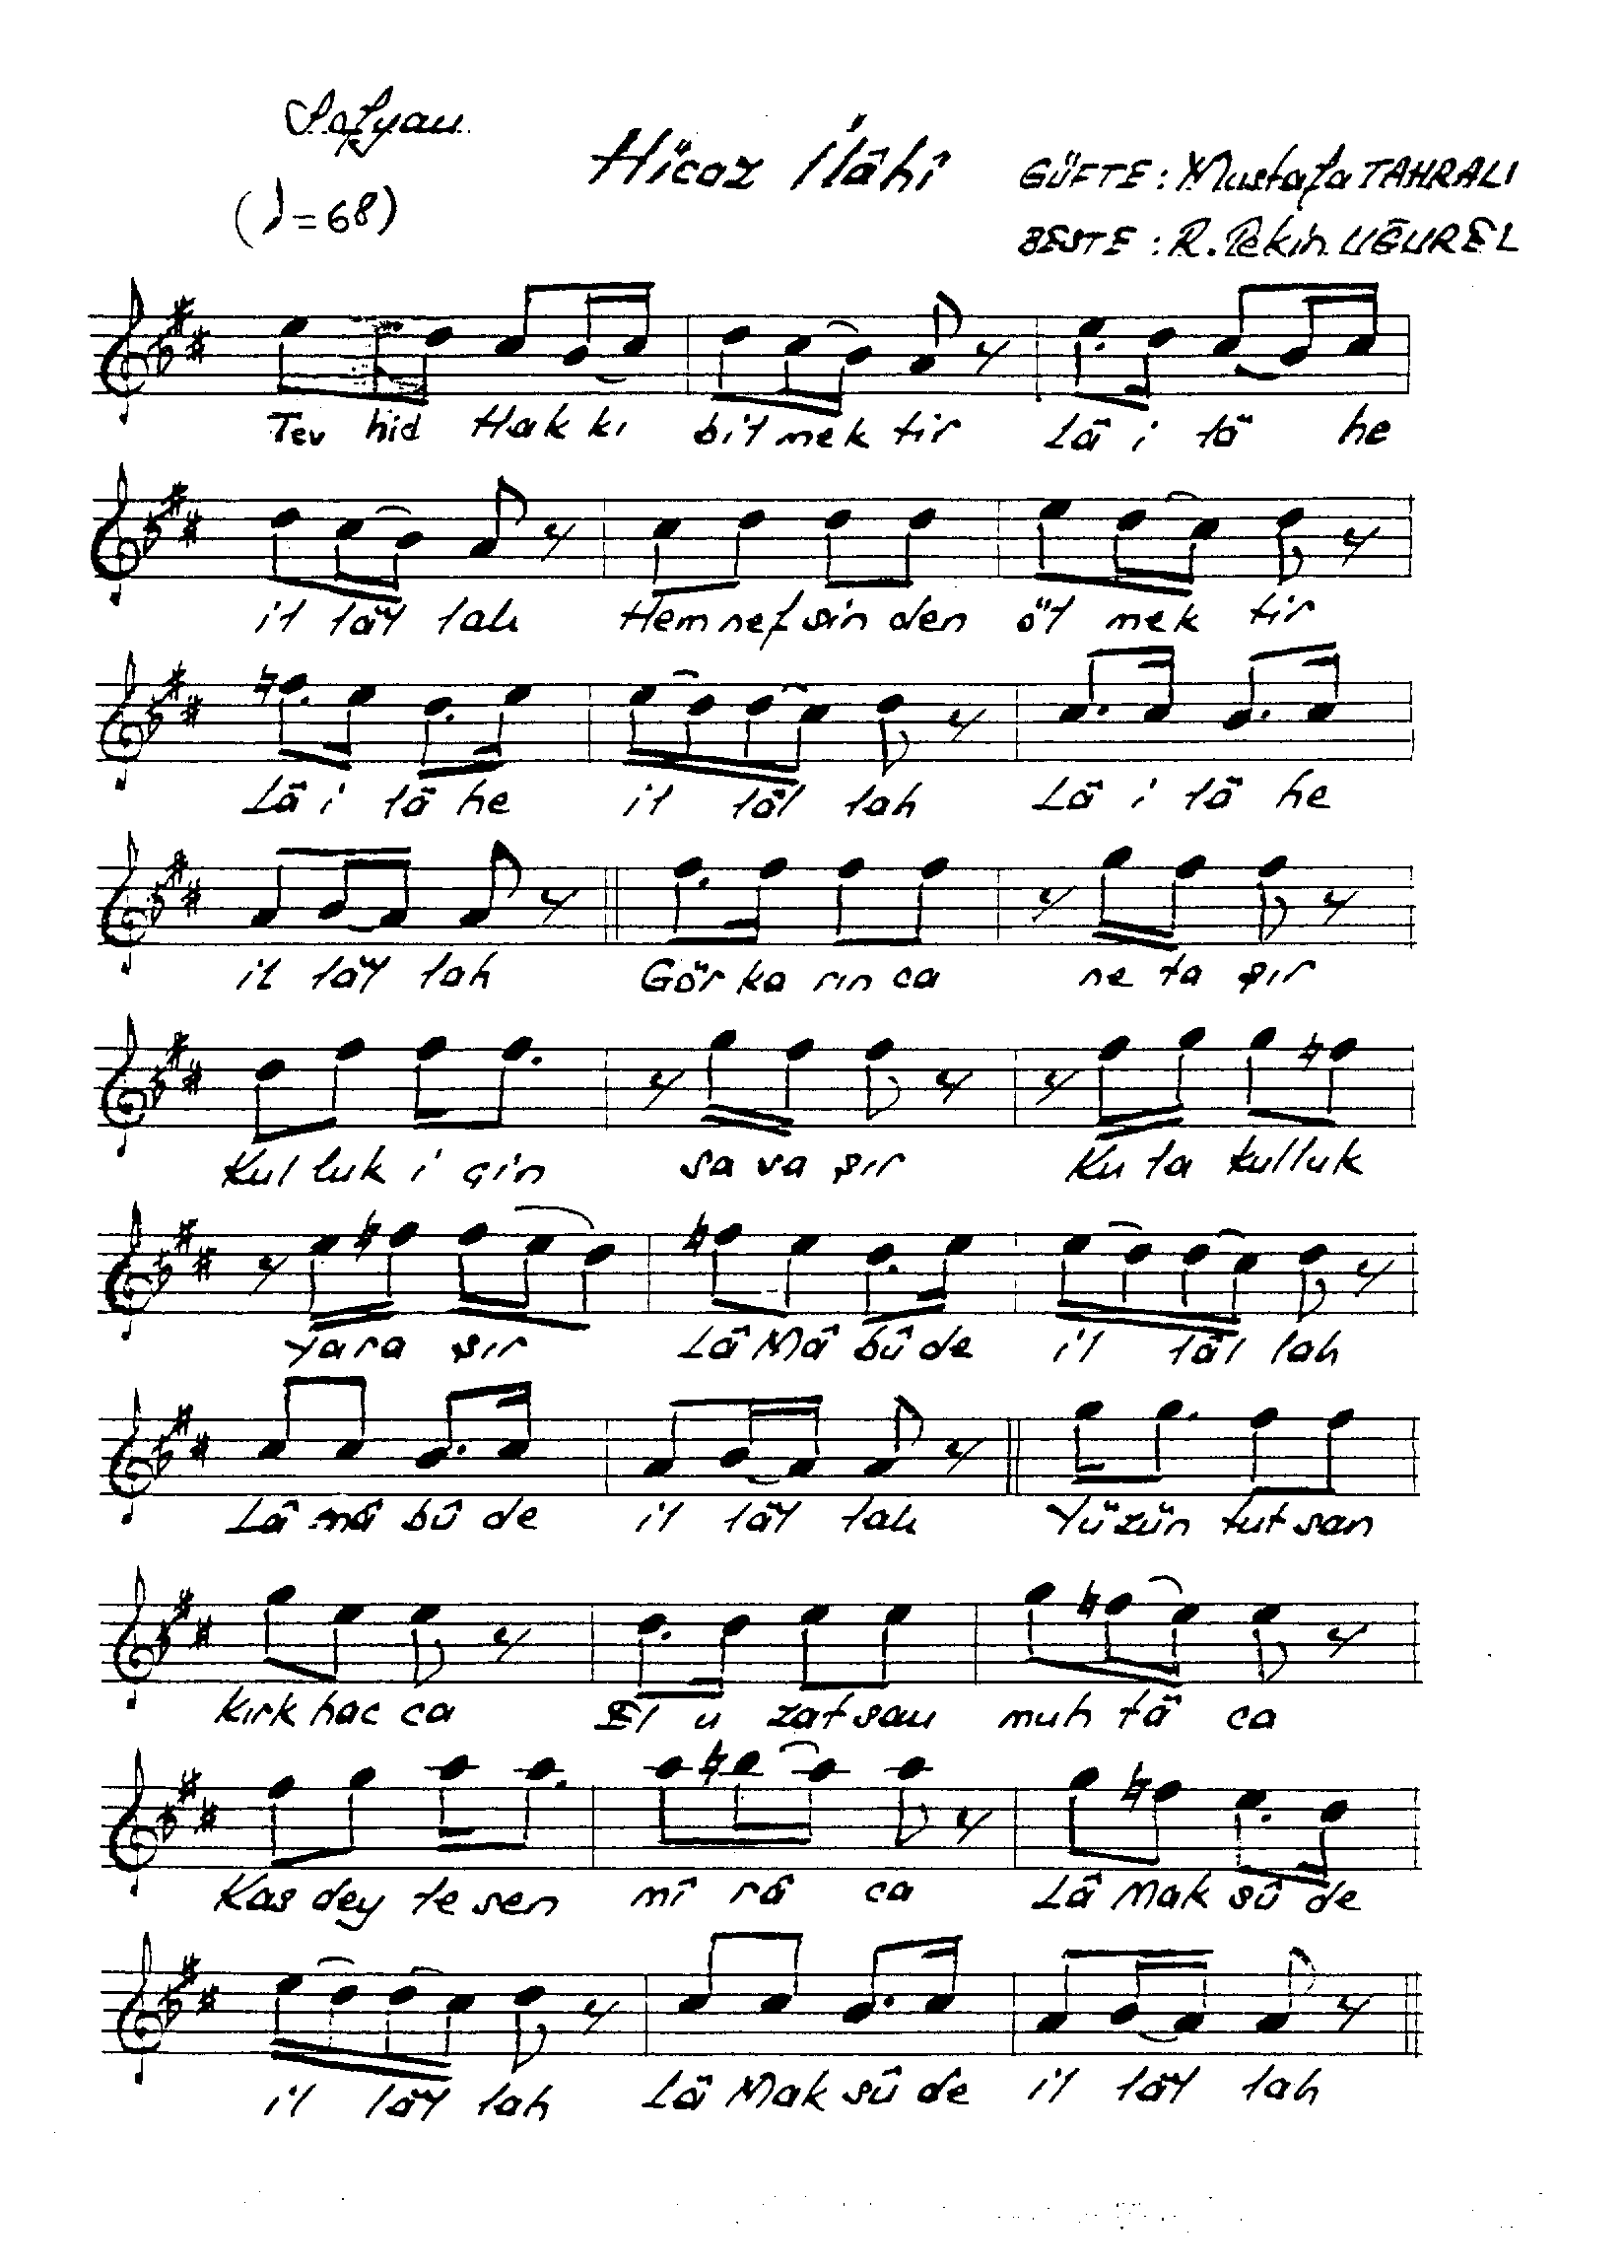 Sofyan
Hicaz İlâhî
(♩=68)
GÜFTE : Mustafa TAHRALI
BESTE : R. Tekin UĞUREL
Tev hid Hak kı bil mek tir Lâ i lâ he
il lâl lah Hem nef sin den öl mek tir
Lâ i lâ he il lâl lah Lâ i lâ he
il lâl lah Gör ka rın ca ne ta şır
Kul luk i çin sa va şır Ku la kulluk
yara şır Lâ Mâ bû de il lâl lah
Lâ mâ bû de il lâl lah Yü zün tut san
kırk hac ca El u zat san muh tâ ca
Kas dey le sen mî râ ca Lâ Mak sû de
il lâl lah Lâ Mak sû de il lâl lah